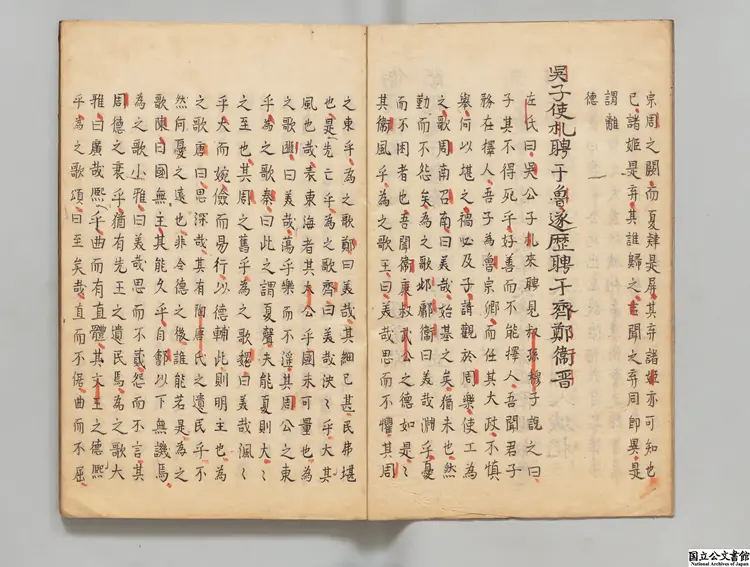 宗周之闕而夏肄是屏其弃諸姬亦可知也
已諸姬是弃其誰歸之吉聞之弃同即異是
謂離
德
吳子使札聘于魯遂歷聘于齊鄭衞晉
左氏曰吳公子札來聘見叔孫穆子說之曰
子其不得死乎好善而不能擇人吾聞君子
務在擇人吾子為魯宗卿而任其大政不慎
舉何以堪之禍必及子請觀於周樂使工為
之歌周南召南曰美哉始基之矣猶未也然
勤而不怨矣為之歌邶鄘衞曰美哉淵乎憂
而不困者也吾聞衞康叔武公之德如是〻
其衞風乎為之歌王曰美哉思而不懼其周
之東乎為之歌鄭曰美哉其細已甚民弗堪
也是先亡乎為之歌齊曰美哉泱〻乎大其
風也哉表東海者其大公乎國未可量也為
之歌豳曰美哉蕩乎樂而不淫其周公之東
乎為之歌秦曰此之謂夏聲夫能夏則大〻
之至也其周之舊乎為之歌魏曰美哉渢〻
乎大而婉儉而易行以德輔此則明主也為
之歌唐曰思深哉其有陶唐氏之遺民乎不
然何憂之遠也非令德之後誰能若是為之
歌陳曰國無主其能久乎自鄶以下無譏焉
為之歌小雅曰美哉思而不貳怨而不言其
周德之衰乎猶有先王之遺民焉為之歌大
雅曰廣哉熙〻乎曲而有直體其文王之德
乎為之歌頌曰至矣哉直而不倨曲而不屈
国立公文書館
National Archives of Japan